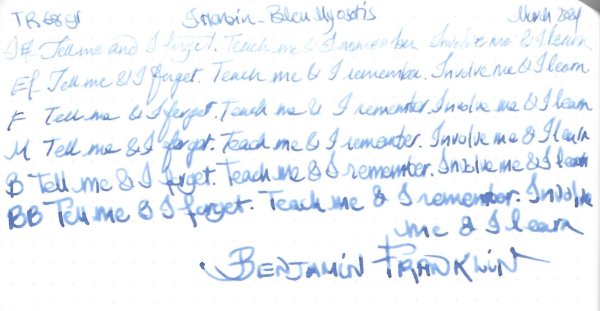 J. Herbin - Bleu Myosotis March 2024
Tell me and I forget. Teach me & I remember. Involve me & I learn
EF Tell me & I forget. Teach me & I remember. Involve me & I learn.
F Tell me & I forget. Teach me & I remember. Involve me & I learn
M Tell me & I forget. Teach me & I remember. Involve me & I learn
B Tell me & I forget. Teach me & I remember. Involve me & I learn
BB Tell me & I forget. Teach me & I remember. Involve
me & I learn
BENJAMIN FRANKLIN